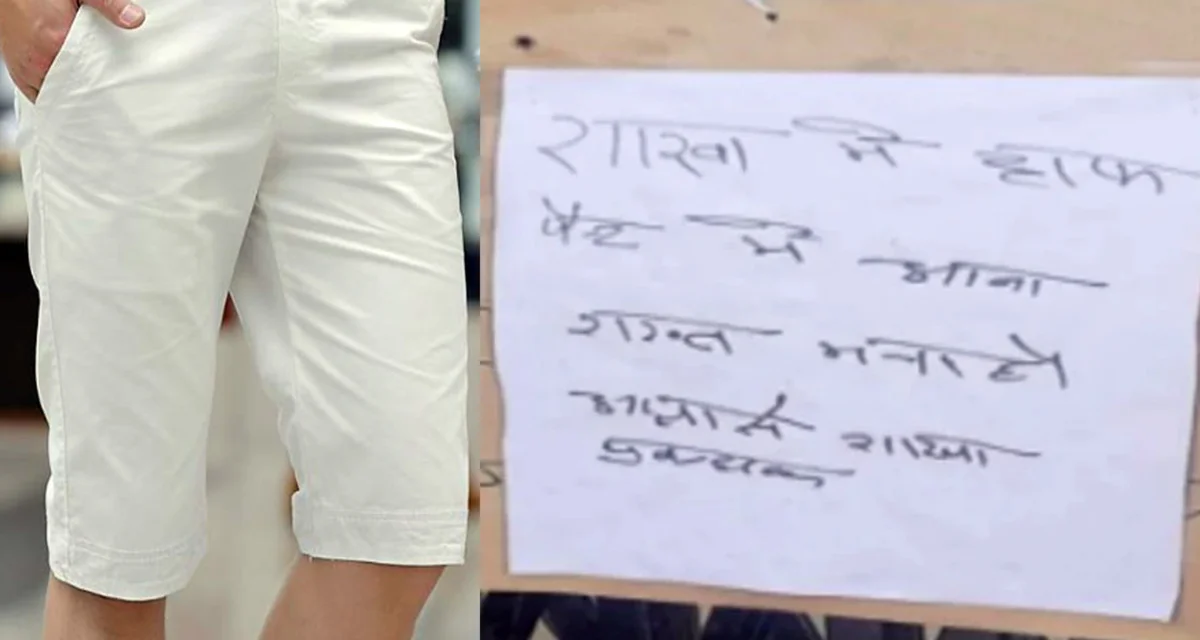 शाखा में हाफ
पैन्ट में आना
शख्त मना है
आज्ञा से शाखा
प्रबन्धक